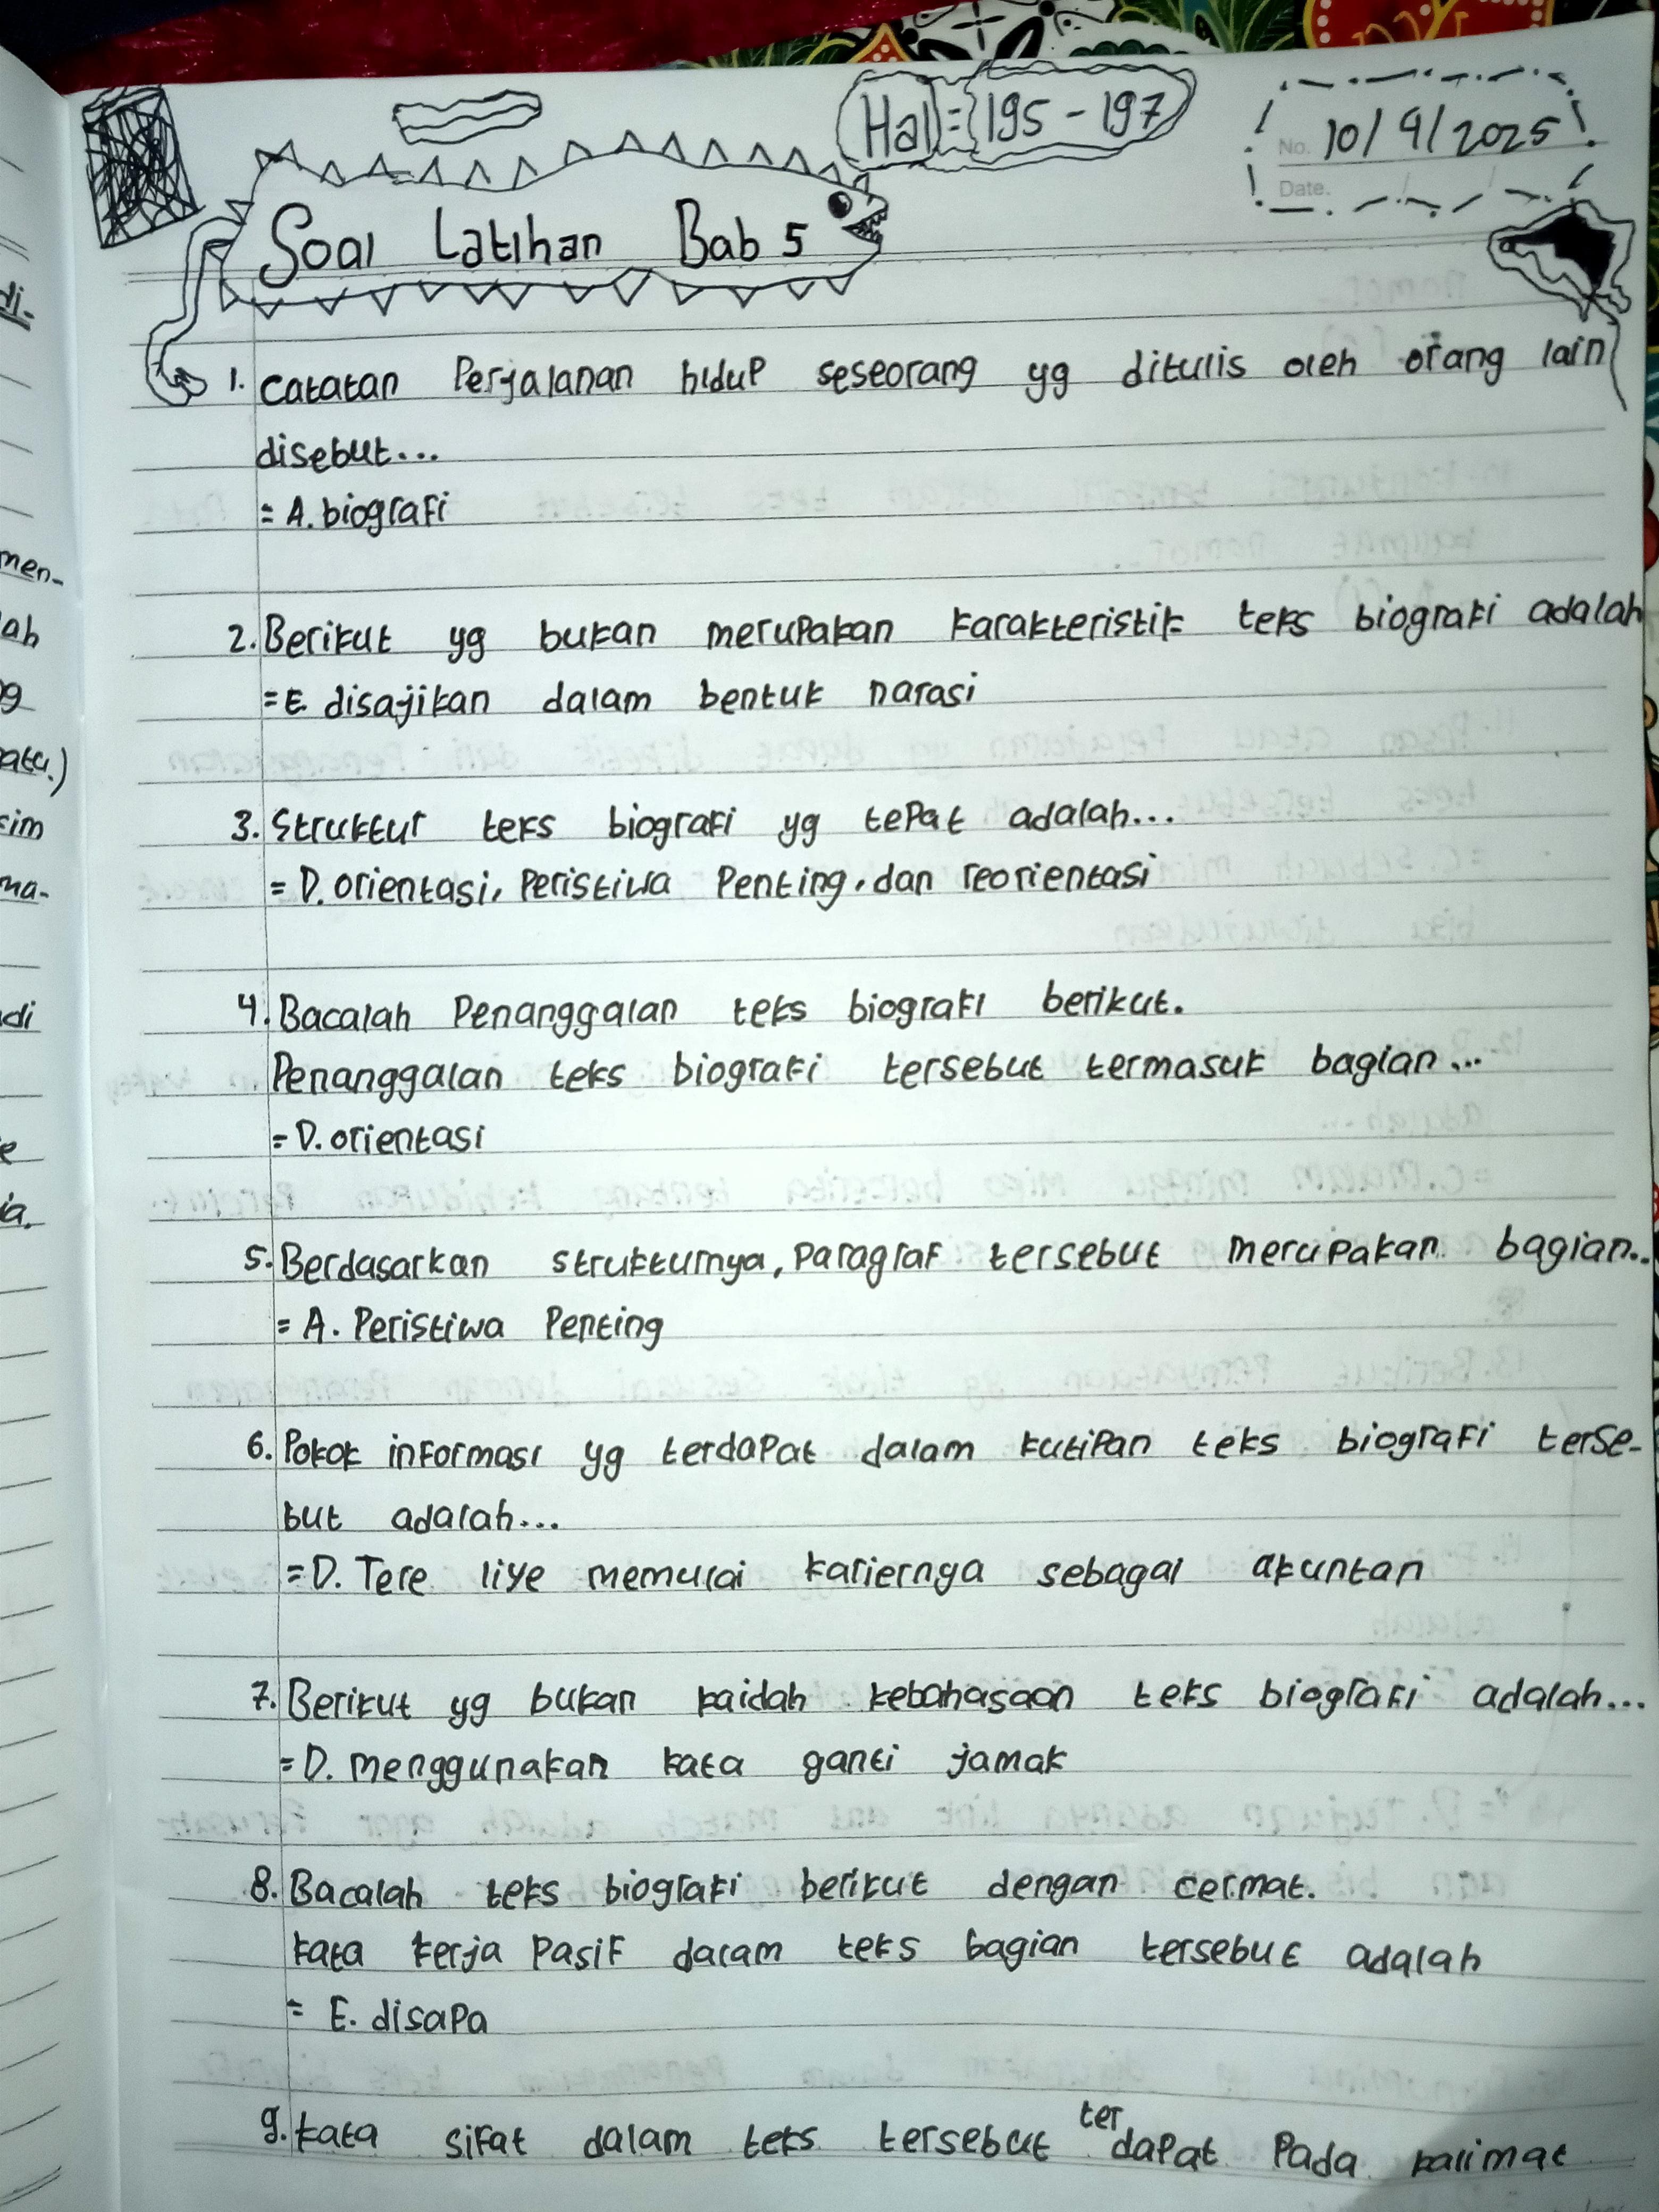 Hal = 195 - 197
No. 10/9/2025
Date.
Soal Latihan Bab 5
1. Catatan Perjalanan hidup seseorang yg ditulis oleh orang lain
disebut...
= A. biografi
2. Berikut yg bukan merupakan karakteristik teks biografi adalah
= E. disajikan dalam bentuk narasi
3. Struktur teks biografi yg tepat adalah...
= D. orientasi, Peristiwa Penting, dan reorientasi
4. Bacalah Penanggalan teks biografi berikut.
Penanggalan teks biografi tersebut termasuk bagian...
= D. orientasi
5. Berdasarkan strukturnya, Paragraf tersebut merupakan bagian..
= A. Peristiwa Penting
6. Pokok informasi yg terdapat dalam kutipan teks biografi terse-
but adalah...
= D. Tere liye memulai kariernya sebagai akuntan
7. Berikut yg bukan kaidah kebahasaan teks biografi adalah...
= D. menggunakan kata ganti jamak
8. Bacalah teks biografi berikut dengan cermat.
kata kerja Pasif dalam teks bagian tersebut adalah
= E. disapa
9. kata sifat dalam teks tersebut terdapat Pada kalimat
di-
men-
ah
g
ata.)
sim
ma-
di
e
ia.